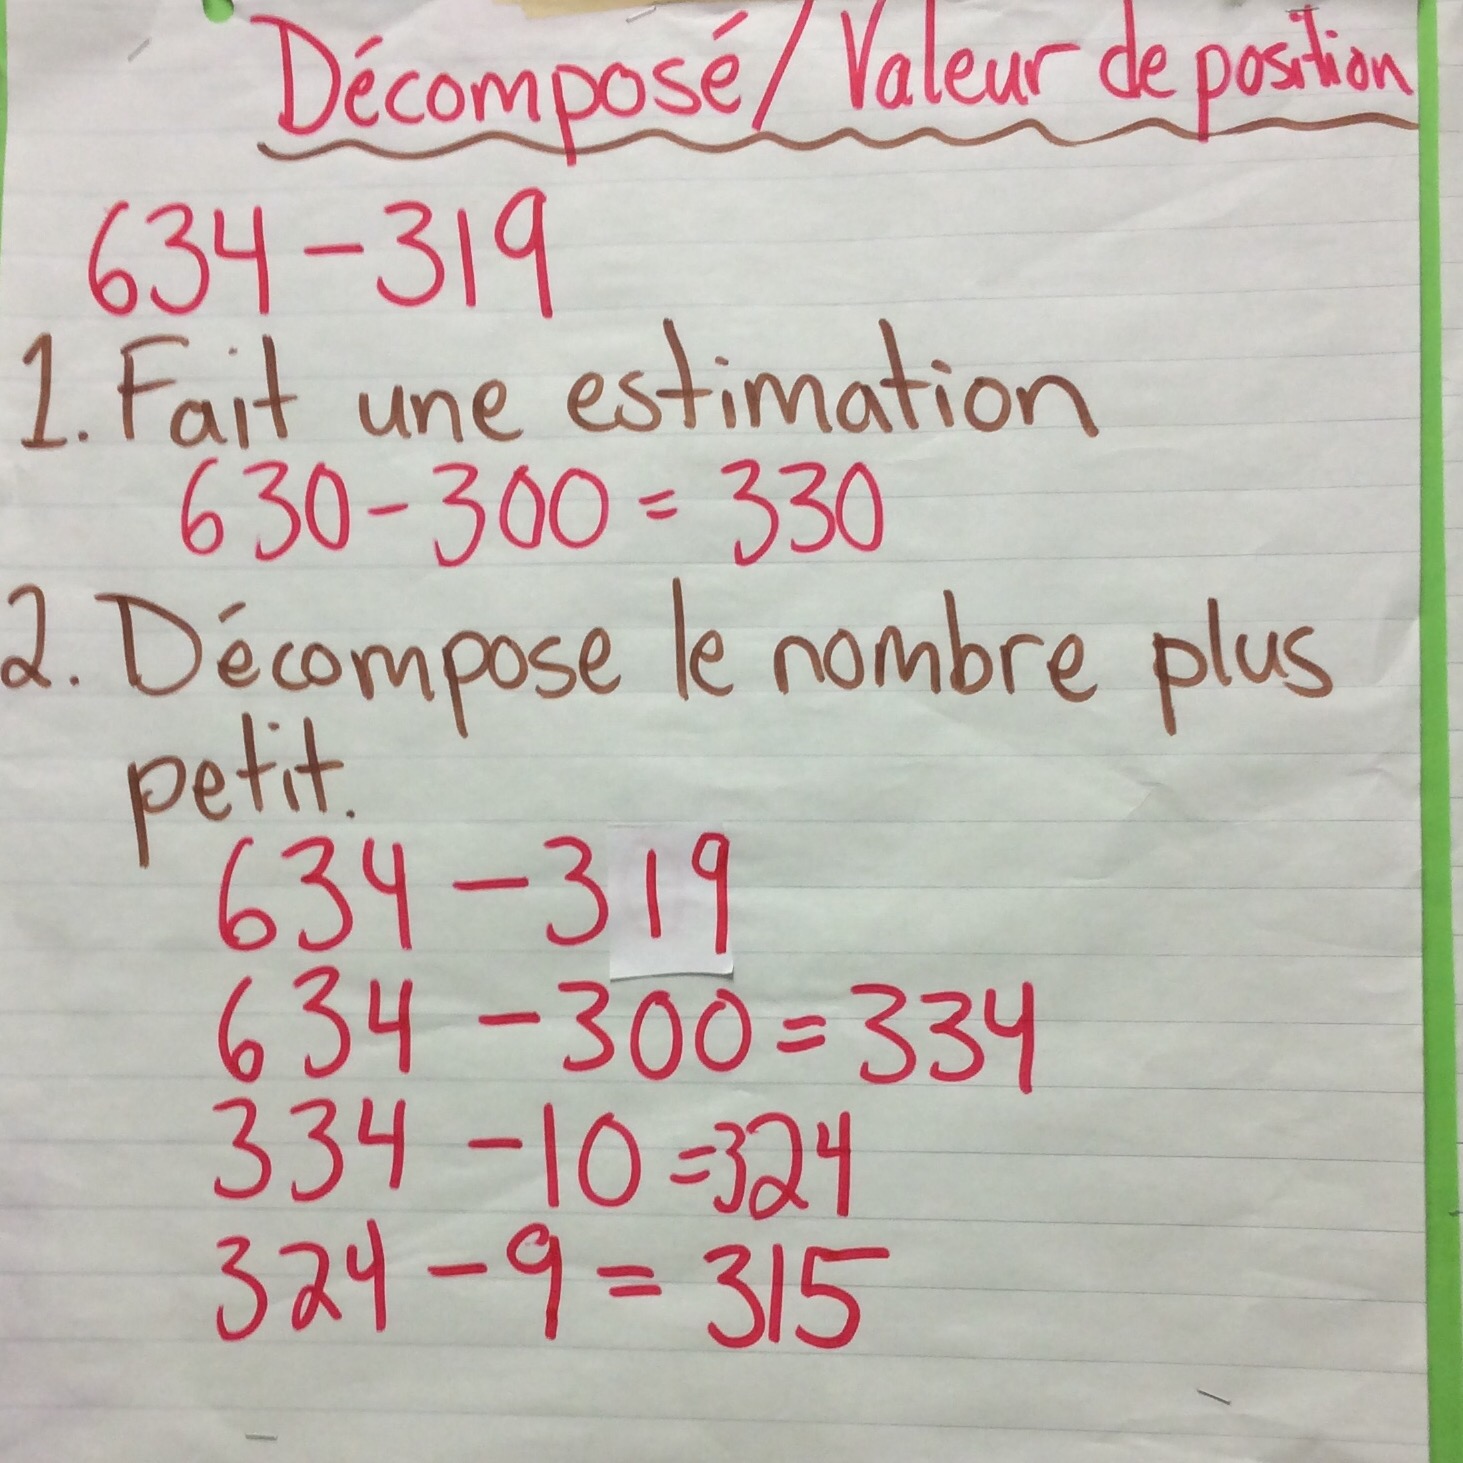 Décomposé/Valeur de position
634-319
1. Fait une estimation
630-300 = 330
2. Décompose le nombre plus
petit.
634 - 319
634 - 300 = 334
334 - 10 = 324
324 - 9 = 315